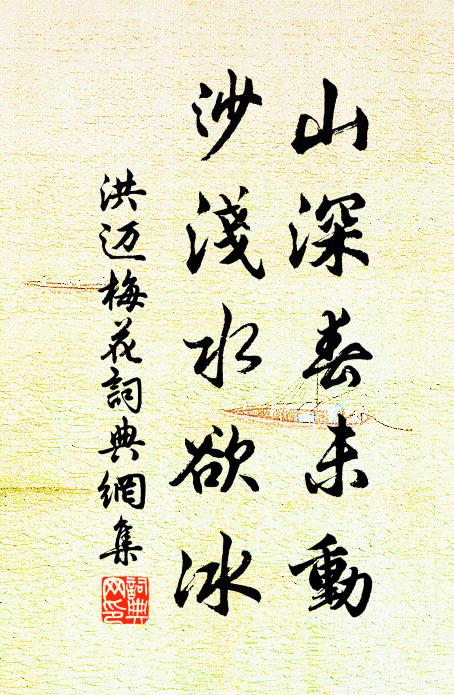 山深春未動
沙淺水欲冰
洪迈梅花詞典網集
詞典
网印